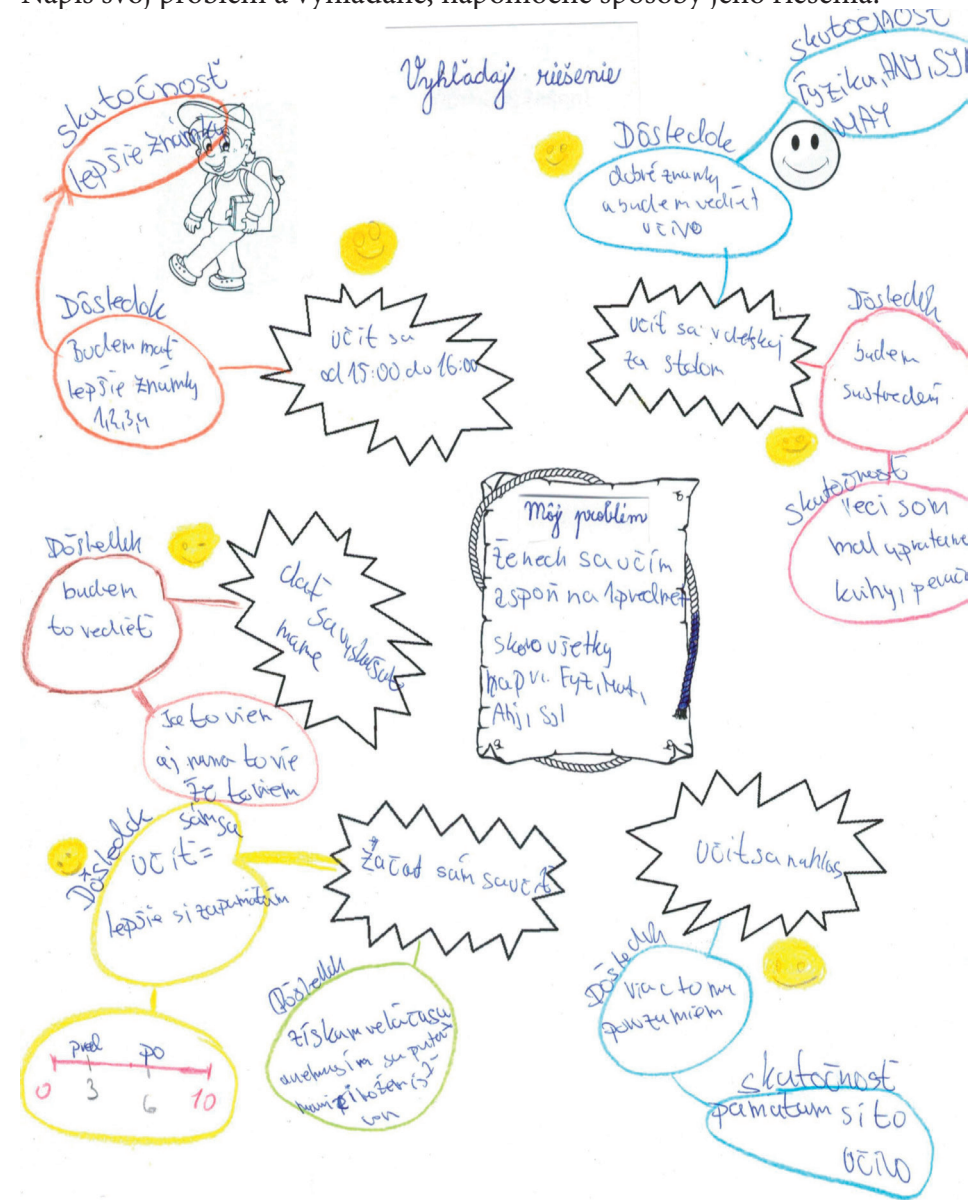 Napíš svoj problém a vyhľadané, nápomocné spôsoby jeho riešenia.
Vyhľadaj riešenie
skutočnosť
lepšie známky
Dôsledok
Budem mať
lepšie známky
1,2,3,4
učiť sa
od 15:00 do 16:00
skutočnosť
Fyziku, ANJ, SJL
MAT
Dôsledok
dobré známky
a budem vedieť
učivo
učiť sa v detskej
za stolom
Dôsledok
budem
sustredení
skutočnosť
veci som
mal upratane
knihy,
Môj problém
že nech sa učím
aspoň na 1 predmet
skoro všetky
napr. Fyz, Mat,
Anj, Sjl
Dôsledok
budem
to vedieť
dať
sa vyskúšať
mame
Ja to viem
aj mama to vie
že to viem
Dôsledok
sám sa
učiť =
lepšie si zapamätám
pred
po
0
3
6
10
Začať sám sa učiť
Dôsledok
získam veľa času
a nemusím sa pýtať
mami či možem ísť
von
Učiť sa nahlas
Dôsledok
viac tomu
porozumiem
skutočnosť
pamatam si to
učivo